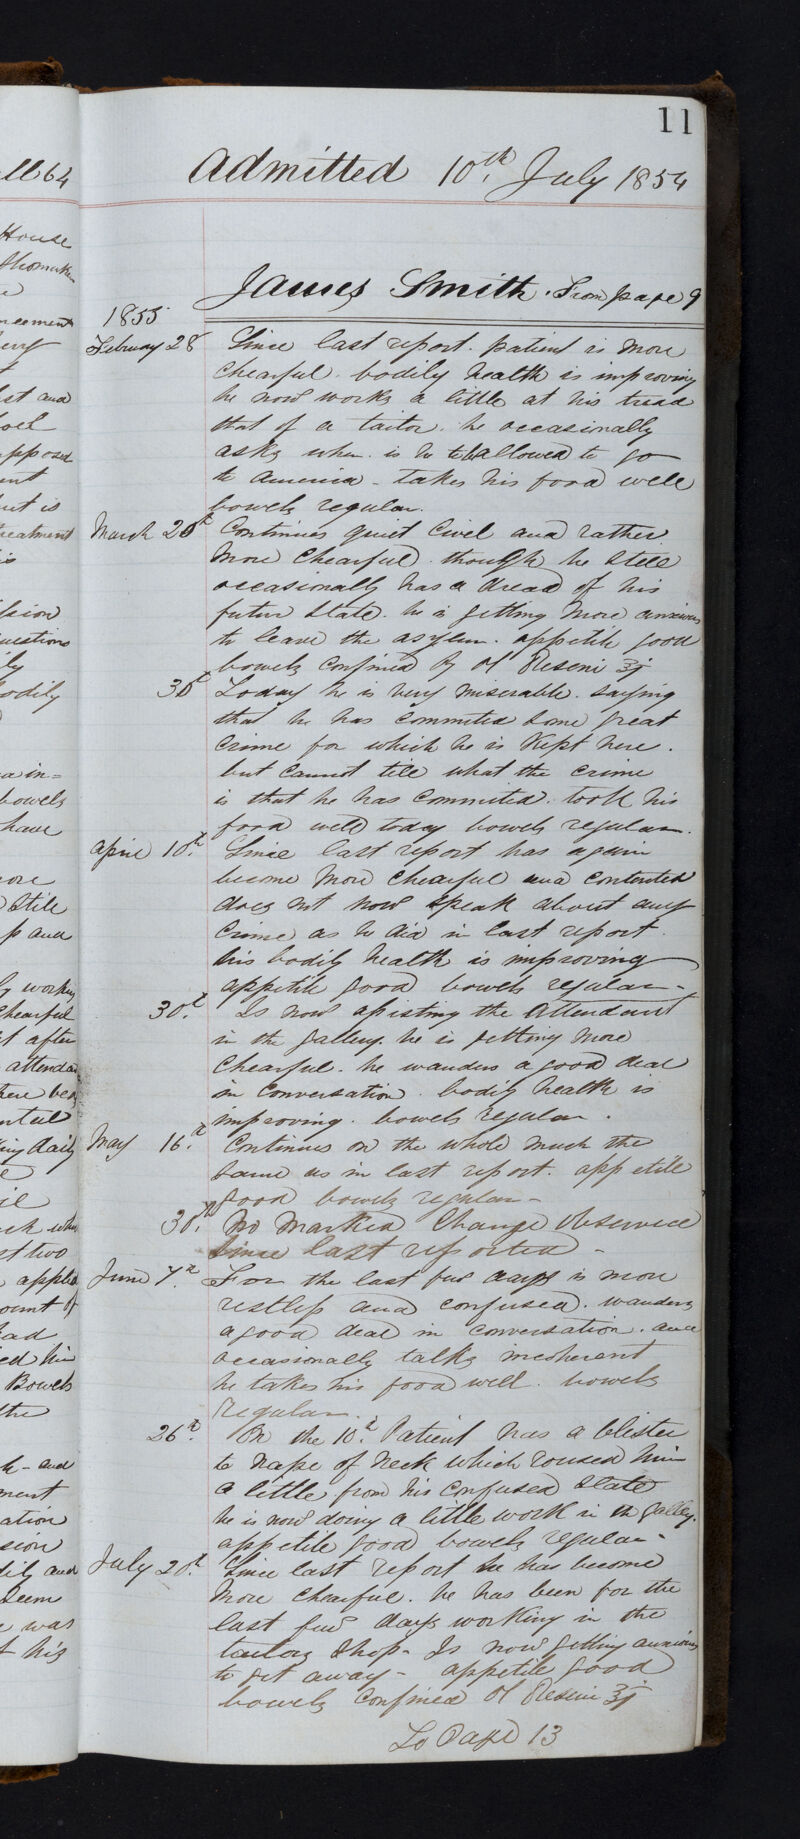 11
Admitted 10th July 1854
James Smith. From page 9
1855
February 28 Since last report. patient is more
chearful. bodily health is improving
he now works a little at his tread
that of a tailor. he occasionally
asks when is he to be allowed to go
to America - takes his food well
bowels regular.
March 20th Continues quiet Civel and rather
more chearful. though he still
occasionally has a dread of his
future state. he is getting more anxious
to leave the asylum. appetite good
bowels confined Ry Ol Reseni ʒj
30th Today he is very miserable. saying
that he has commited some great
crime for which he is kept here.
but cannot tell what the crime
is that he has commited. took his
food well today bowels regular.
April 10th. Since last report has again
become more chearful and contented
does not now speak about any
crime as he did in last report.
his bodily health is improving
appetite good bowels regular-
30th. Is now assisting the Attendant
in the gallery. he is getting more
chearful. he wanders a good deal
in conversation. bodily health is
improving. bowels regular.
May 16th. Continues on the whole much the
same as in last report. appetite
good bowels regular-
30th. No marked change observed
since last reported -
June 7th. For the last few days is more
restless and confused. wanders
a good deal in conversation. and
occasionally talks incoherent
he takes his food well. bowels
regular.
26th. On the 10th. Patient has a blister
to nape of neck which roused him
a little from his confused state
he is now doing a little work in the galley.
appetite good bowels regular-
July 20th. Since last report he has become
more chearful. he has been for the
last few days working in the
tailors shop- Is now getting anxious
to get away- appetite good
bowels confined Ol Reseni ʒj
To Page 13
all 64
House
just and
apposed
but is
treatment
his
bodily
bowels
have
Stile
up and
working
chearful
after
daily
two
him
Bowels
the
and
was
his